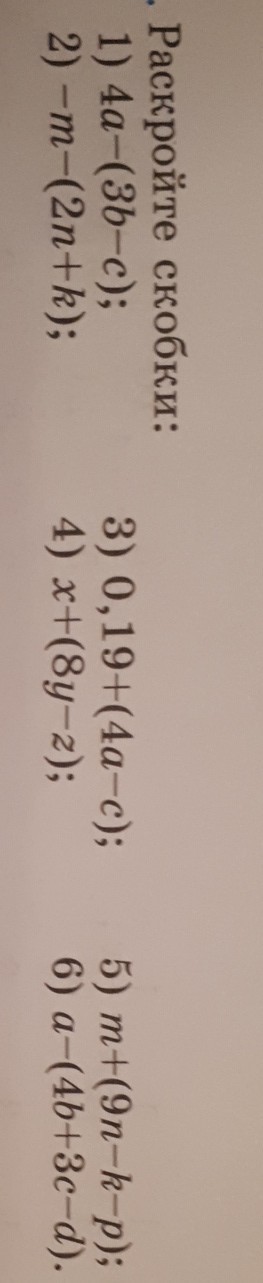 . Раскройте скобки:
1) 4a−(3b−c); 3) 0,19+(4a−c); 5) m+(9n−k−p);
2) −m−(2n+k); 4) x+(8y−z); 6) a−(4b+3c−d).